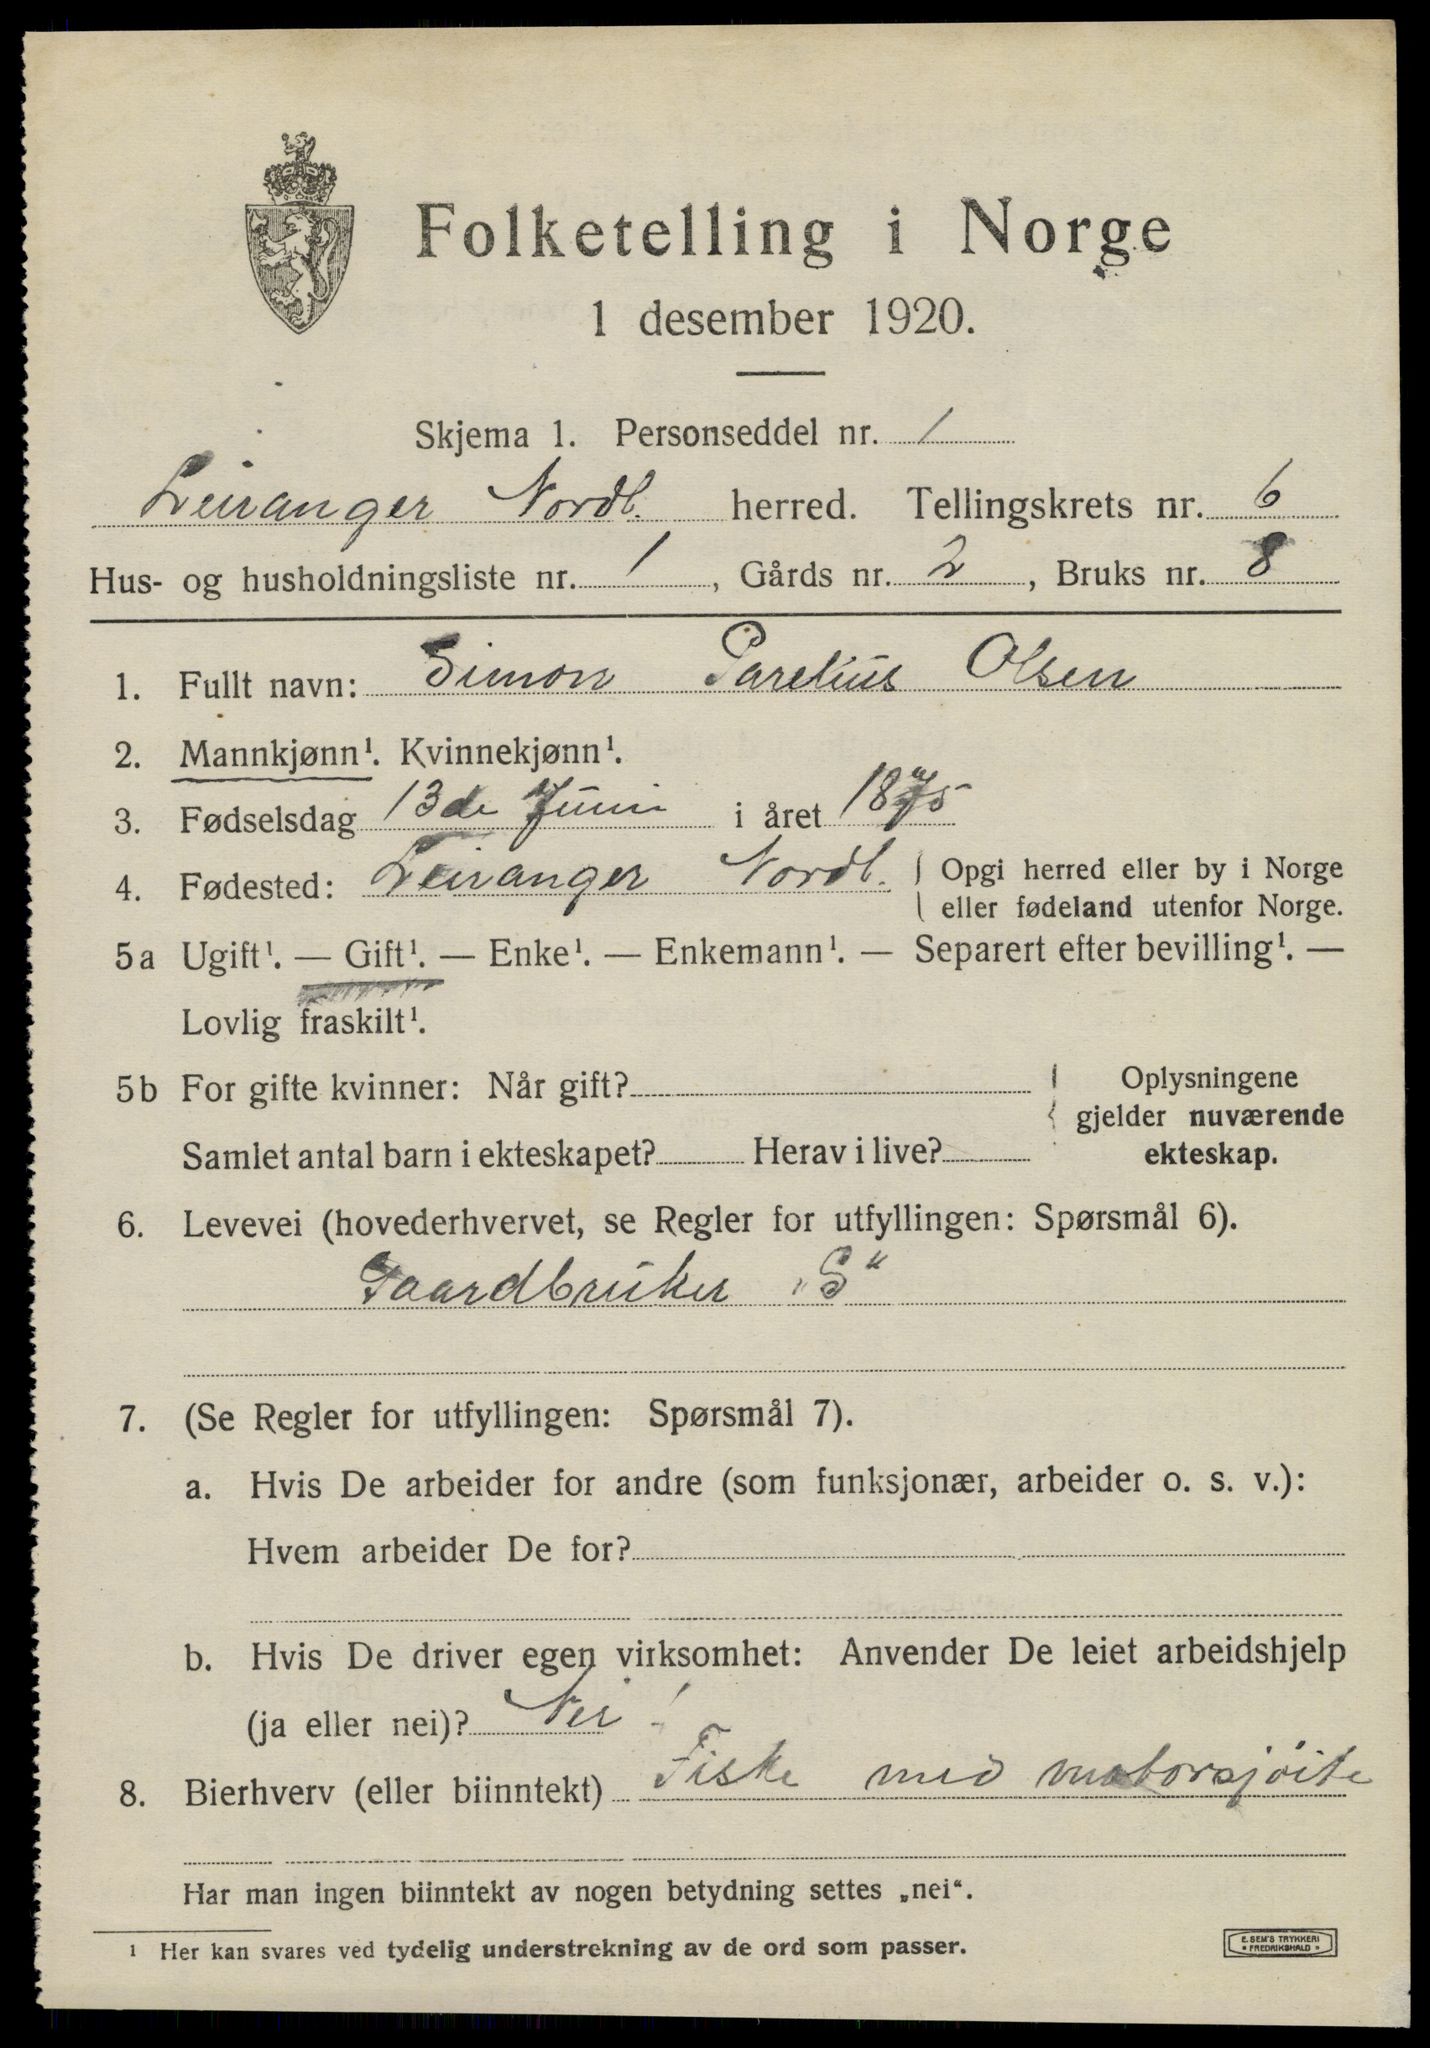 Folketelling i Norge
1 desember 1920.
Skjema 1. Personseddel nr. 1
Leiranger Nordl. herred. Tellingskrets nr. 6
Hus- og husholdningsliste nr. 1, Gårds nr. 2, Bruks nr. 8
1. Fullt navn: Simon Parelius Olsen
2. Mannkjønn¹. Kvinnekjønn¹.
3. Fødselsdag 13de Juni i året 1875
4. Fødested: Leiranger Nordl. Opgi herred eller by i Norge
eller fødeland utenfor Norge.
5a Ugift¹. — Gift¹. — Enke¹. — Enkemann¹. — Separert efter bevilling¹. —
Lovlig fraskilt¹.
5b For gifte kvinner: Når gift? Oplysningene
gjelder nuværende
Samlet antal barn i ekteskapet? Herav i live? ekteskap.
6. Levevei (hovederhvervet, se Regler for utfyllingen: Spørsmål 6).
Gaardbruker "S"
7. (Se Regler for utfyllingen: Spørsmål 7).
a. Hvis De arbeider for andre (som funksjonær, arbeider o. s. v.):
Hvem arbeider De for?
b. Hvis De driver egen virksomhet: Anvender De leiet arbeidshjelp
(ja eller nei)? Nei!
8. Bierhverv (eller biinntekt) Fiske med motorsjöite
Har man ingen biinntekt av nogen betydning settes „nei“.
¹ Her kan svares ved tydelig understrekning av de ord som passer.
E. SEM'S TRYKKERI
* FREDRIKSHALD *